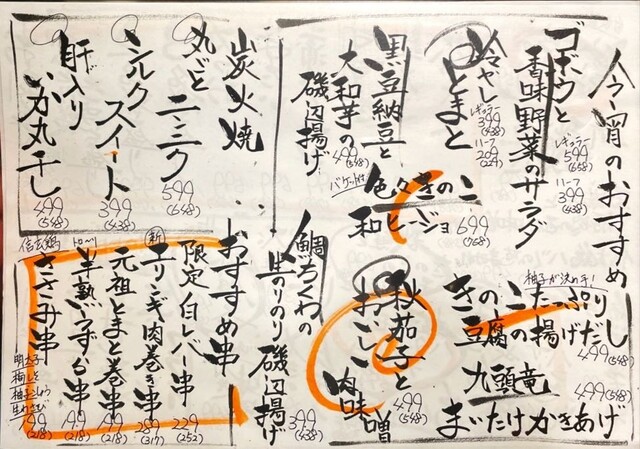 今宵のおすすめ
ゴボウと
香味野菜のサラダ
レギュラー
599
(658)
ハーフ
399
(438)
冷やし
とまと
レギュラー
399
(438)
ハーフ
209
(229)
黒豆納豆と
大和芋の
磯辺揚げ
499
(548)
色々きのこ
和ヒージョ
699
(768)
バケット付
炭火焼
丸ごと
ニンニク
599
(658)
シルク
スイート
399
(438)
肝入り
いか丸干し
499
(548)
柚子が決め手!
きのこたっぷり
豆腐の揚げだし
499(548)
九頭竜
まいたけかきあげ
499(548)
秋茄子と
おこし
肉味噌
499
(548)
鯛ちくわの
生のり
磯辺揚げ
399
(438)
おすすめ串
限定白レバー串
229
(252)
新
エリンギ肉巻き串
289
(317)
元祖とまと巻串
199
(218)
半熟うずら串
199
(218)
信玄鶏
ささみ串
明太子
梅しそ
柚子こしょう
生わさび
199
(218)